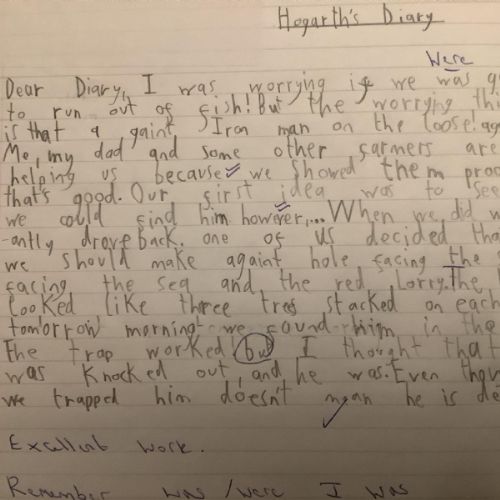 Hogarth's Diary
Were
Dear Diary, I was worrying if we was
to run out of fish! But the worrying
is that a gaint Iron man on the loose!
Me, my dad and some other farmers are
helping us because we showed them
that's good. Our first idea was to see
we could find him however,... When we did
-antly drove back. one of us decided
we should make againt hole facing the
facing the sea and the red lorry. The
looked like three tres stacked on each
tomorrow morning we found him in the
the trap worked! but I thought that
was knocked out, and he was. Even
we trapped him doesn't mean he is
Excellent work.
Remember was / were I was